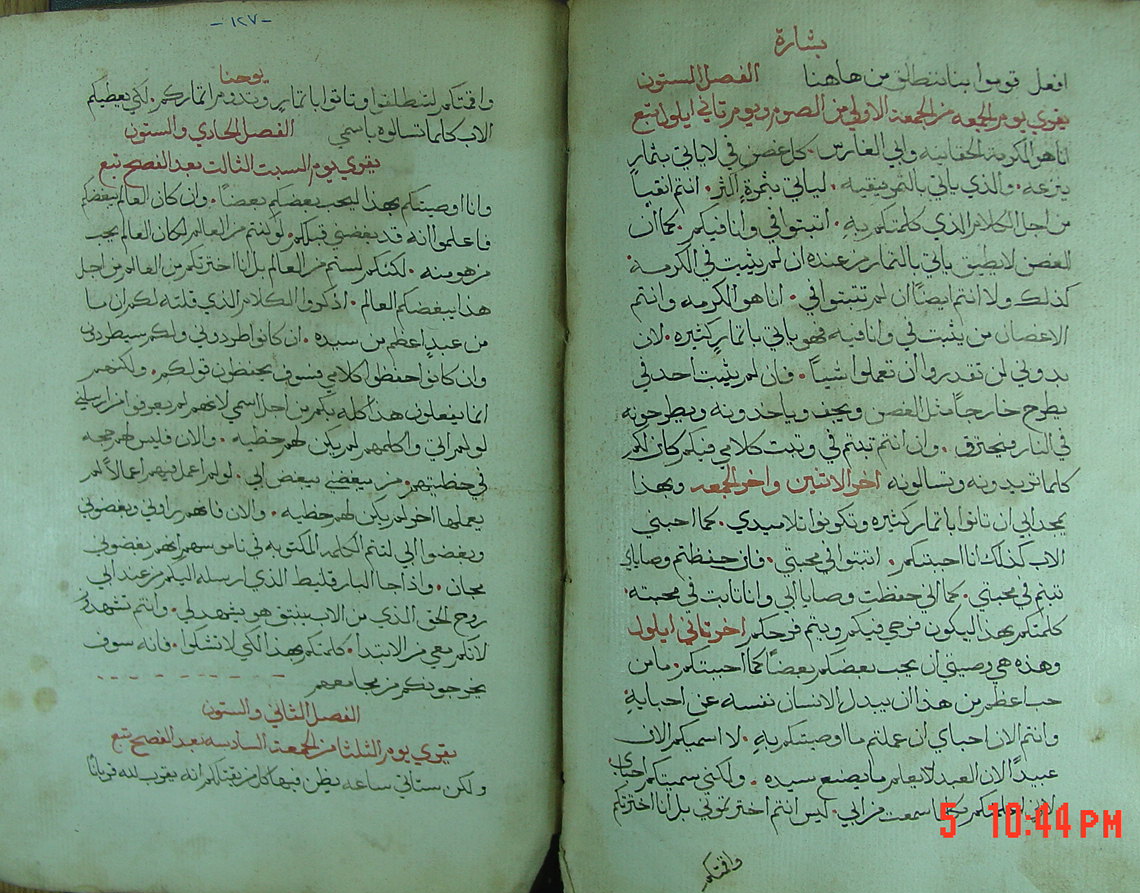 بشارة
افعل قوموا بنا ننطلق من هاهنا الفصل الستون
يقري يوم الجمعه من الجمعة الاولي من الصوم ويوم تاني ايلول تبع
انا هو الكرمة الحقانيه وابي الغارس. كل غصن في لا ياتي بثمار
ينزعه. والذي ياتي بالثمر ينقيه. لياتي بثمرة اكثر. انتم انقيا
من اجل الكلام الذي كلمتكم به. اتبتوا في وانا فيكم. كما ان
الغصن لا يطيق ياتي بالثمار من عنده ان لم يثبت في الكرمة.
كذلك ولا انتم ايضاً ان لم تثبتوا في. انا هو الكرمه وانتم
الاغصان من يثبت في وانا فيه فهو ياتي باتمار كثيره. لان
بدوني لن تقدروا أن تعملوا شياً. فان لم يثبت أحد في
يطرح خارجاً مثل الغصن ويجف وياخدونه ويطرحونه
في النار فيحترق. وان انتم تبتم في وتبت كلامي فيكم كان لكم
كلما تريدونه وتسالونه اخر الاتنين واخر الجمعه وبهذا
يمجد ابي ان تاتوا باتمار كثيره وتكونوا تلاميدي. كما احبني
الاب كذلك انا احببتكم. اتبتوا في محبتي. فان حفظتم وصاياي
تبتم في محبتي. كما اني حفظت وصايا ابي وانا تابت في محبته.
كلمتكم بهذا ليكون فرحي فيكم ويتم فرحكم اخر تاني ايلول
وهذه هي وصيتي أن يحب بعضكم بعضاً كما احببتكم. ما من
حب اعظم من هذا ان يبدل الانسان نفسه عن احبايه
وانتم الان احباي ان عملتم ما اوصيتكم به. لا اسميكم الان
عبيداً لان العبد لا يعلم ما يصنع سيده. ولكني سميتكم احباي
لاني اعلمتكم بكلما سمعت من ابي. ليس انتم اخترتموني بل انا اخترتكم
واقمتكم
-١٢٧-
يوحنا
واقمتكم لتنطلقوا وتاتوا باتمار وتدوم اتماركم. لكي يعطيكم
الاب كلما تسالوه باسمي الفصل الحادي والستون
يقري يوم السبت الثالت بعد الفصح تبع
وانا اوصيتكم بهذا ليحب بعضكم بعضاً. وان كان العالم يبغضكم
فاعلموا انه قد بغضني قبلكم. لو كنتم من العالم لكان العالم يحب
من هو منه. لكنكم لستم من العالم بل انا اخترتكم من العالم من اجل
هذا يبغضكم العالم. اذكروا الكلام الذي قلته لكم ان ما
من عبد اعظم من سيده. ان كانوا طردوني ولكم سيطردون
وان كانوا حفظوا كلامي فسوف يحفظون قولكم. ولكنهم
انما يفعلون هذا كله بكم من اجل اسمي لانهم لم يعرفوا من ارسلني
لو لم اتي واكلمهم لم يكن لهم خطيه. والان فليس لهم حجه
في خطيتهم. من يبغضني يبغض ابي. لو لم اعمل فيهم اعمالاً لم
يعملها اخر لم يكن لهم خطيه. والان فانهم راوني وبغضوني
وبغضوا ابي لتتم الكلمه المكتوبه في ناموسهم انهم بغضوني
مجان. واذا جا البارقليط الذي ارسله اليكم من عند ابي
روح الحق الذي من الاب ينبتق هو يشهد لي. وانتم تشهدون
لانكم معي من الابتدا. كلمتكم بهذا لكي لا تشكوا. فانه سوف
يخرجونكم من مجامعهم
الفصل الثاني والستون
يقري يوم الثلثا من الجمعة السادسه بعد الفصح تبع
ولكن ستاتي ساعه يظن فيها كل من يقتلكم انه يقرب لله قرباناً
5 10:44 PM